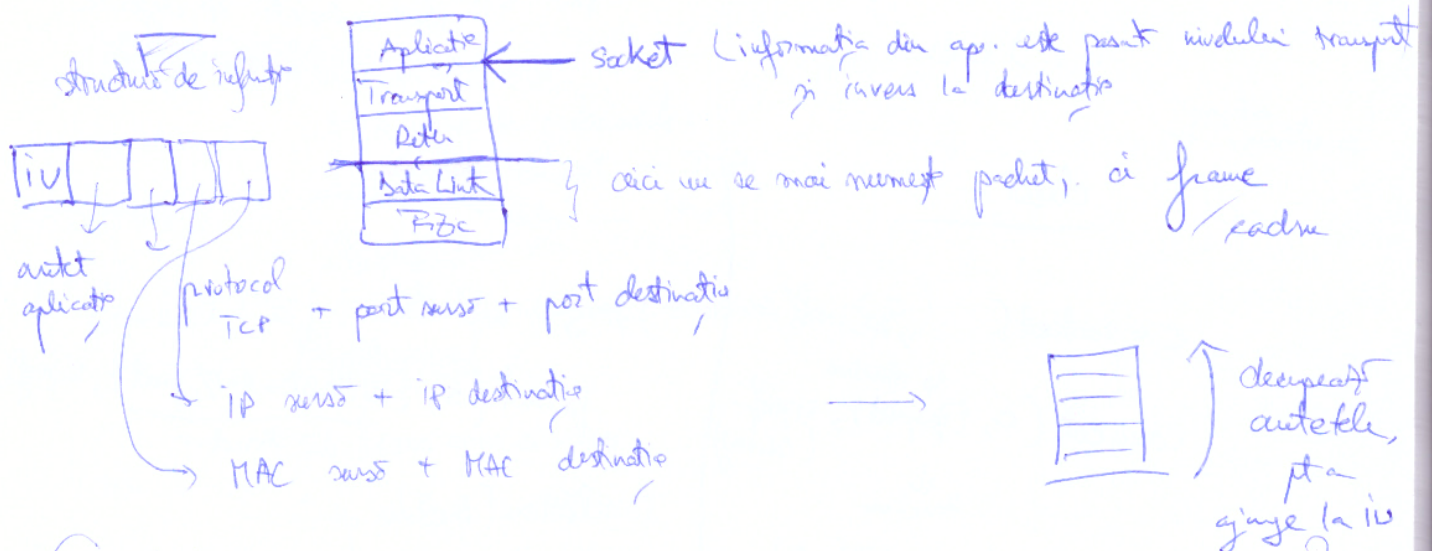 structură de
Aplicație
Transport
Rețea
Data Link
Fizic
socket (informația din ap. este pasată nivelului transport
și invers la destinație
iu
aici nu se mai numește pachet, ci frame
/ cadru
antet
aplicație
protocol
TCP + port sursă + port destinație
iP sursă + iP destinație
MAC sursă + MAC destinație
decupează
antetele,
pt a
ajunge la iu